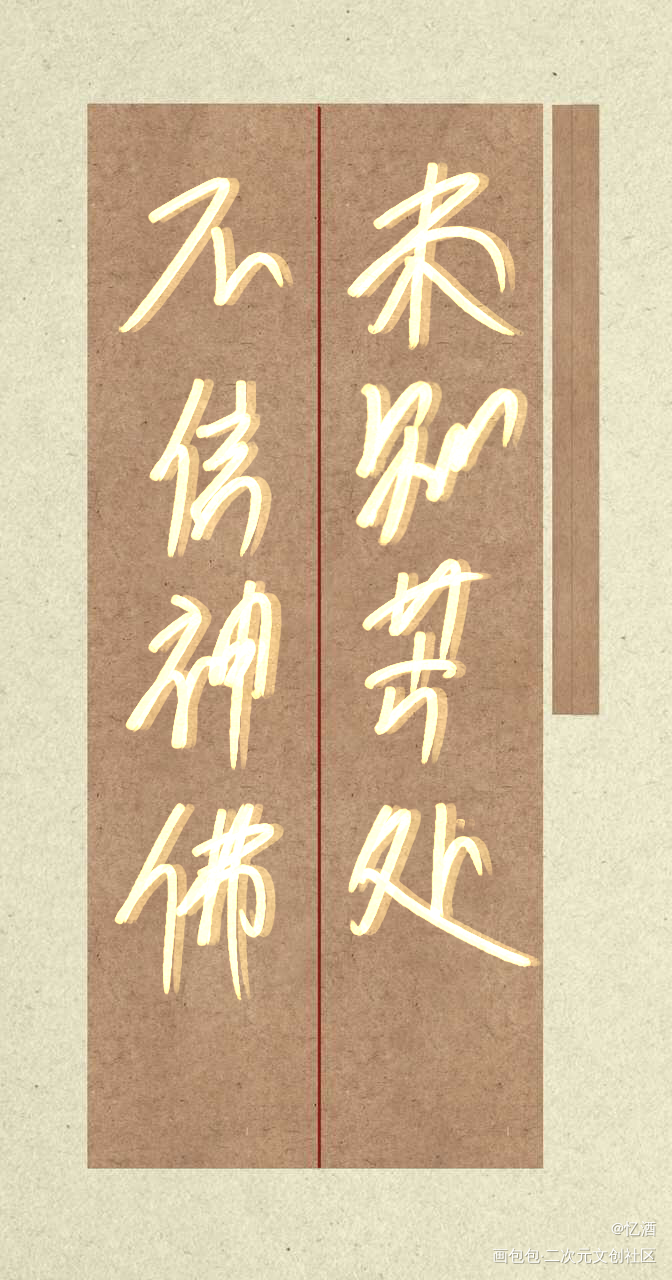 未知苦处
不信神佛
@忆酒
画包包·二次元文创社区